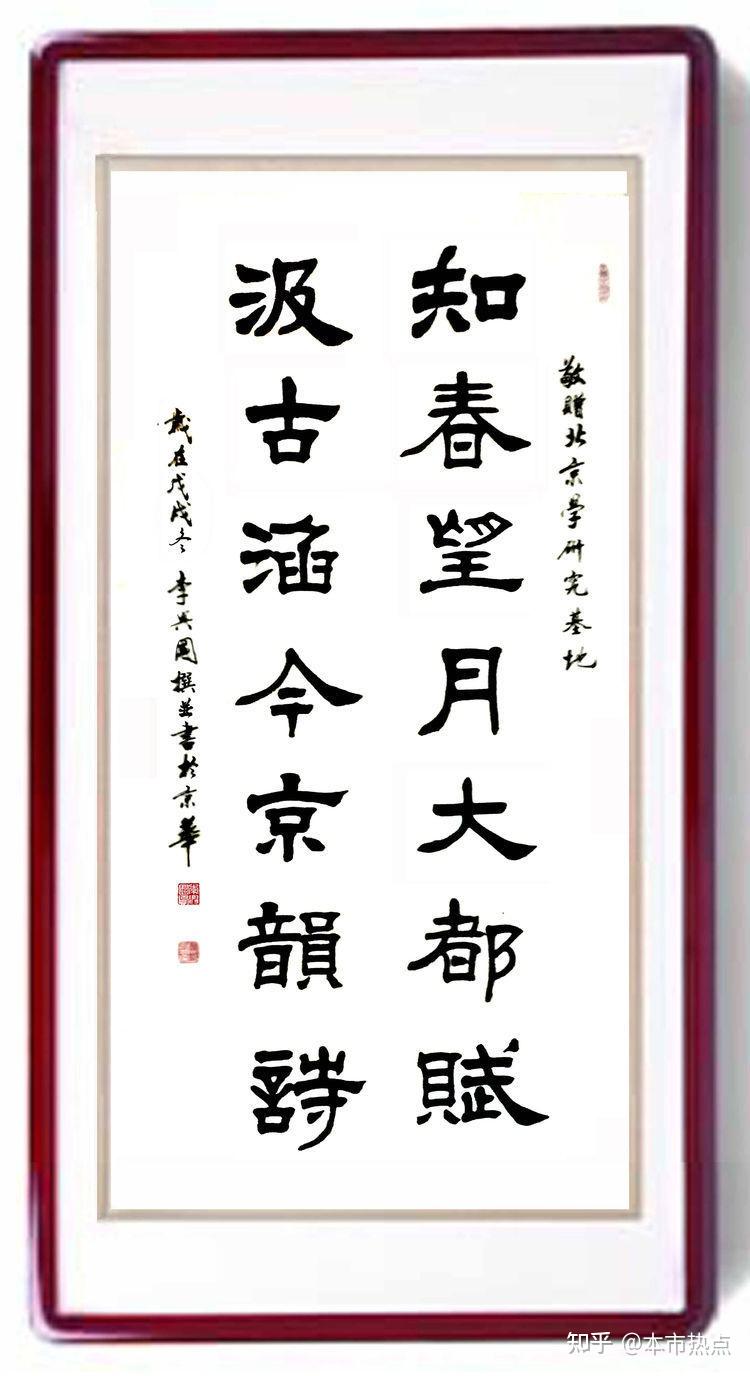 敬贈北京學研究基地
知春望月大都賦
汲古涵今京韻詩
歲在戊戌冬 李興國撰並書於京華
知乎 @本市热点